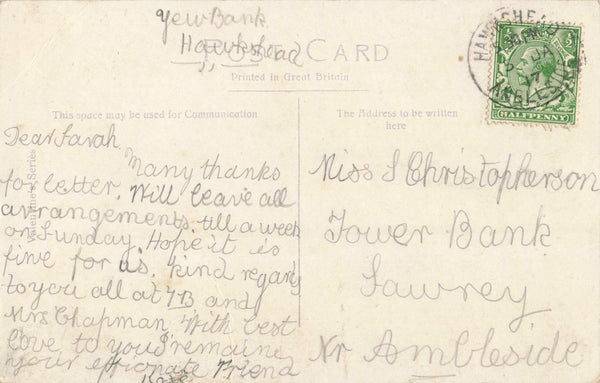 Yew Bank
Hawkshead
POST CARD
Printed in Great Britain
This space may be used for Communication.
Dear Sarah
Many thanks
for letter. Will leave all
arrangements. till a week
on Sunday. Hope it is
fine for us. kind regards
to you all at TB and
Mrs Chapman. With best
love to you I remaine
your effionate Friend
Valentine's Series
The Address to be written
here
Miss S Christopherson
Tower Bank
Sawrey
Nr Ambleside
HAWKSHEAD
AMBLESIDE
17
HALFPENNY